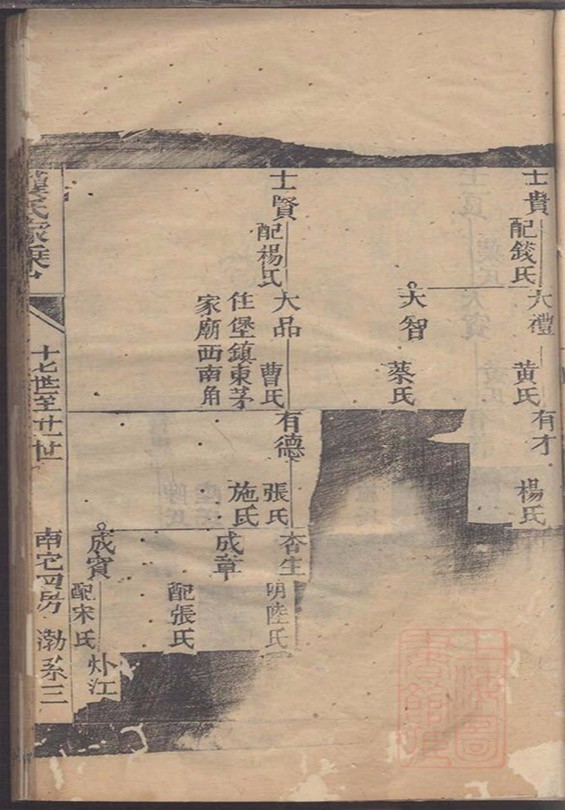 士貴
配錢氏
大禮
黃氏
有才
楊氏
大智
蔡氏
士賢
配楊氏
大品
曹氏
住堡鎮東茅
家廟西南角
有德
張氏
施氏
杏生
明陸氏
成章
配張氏
成賓
配宋氏
氏家乘
十七世至廿一世
南宅四房
渤系三